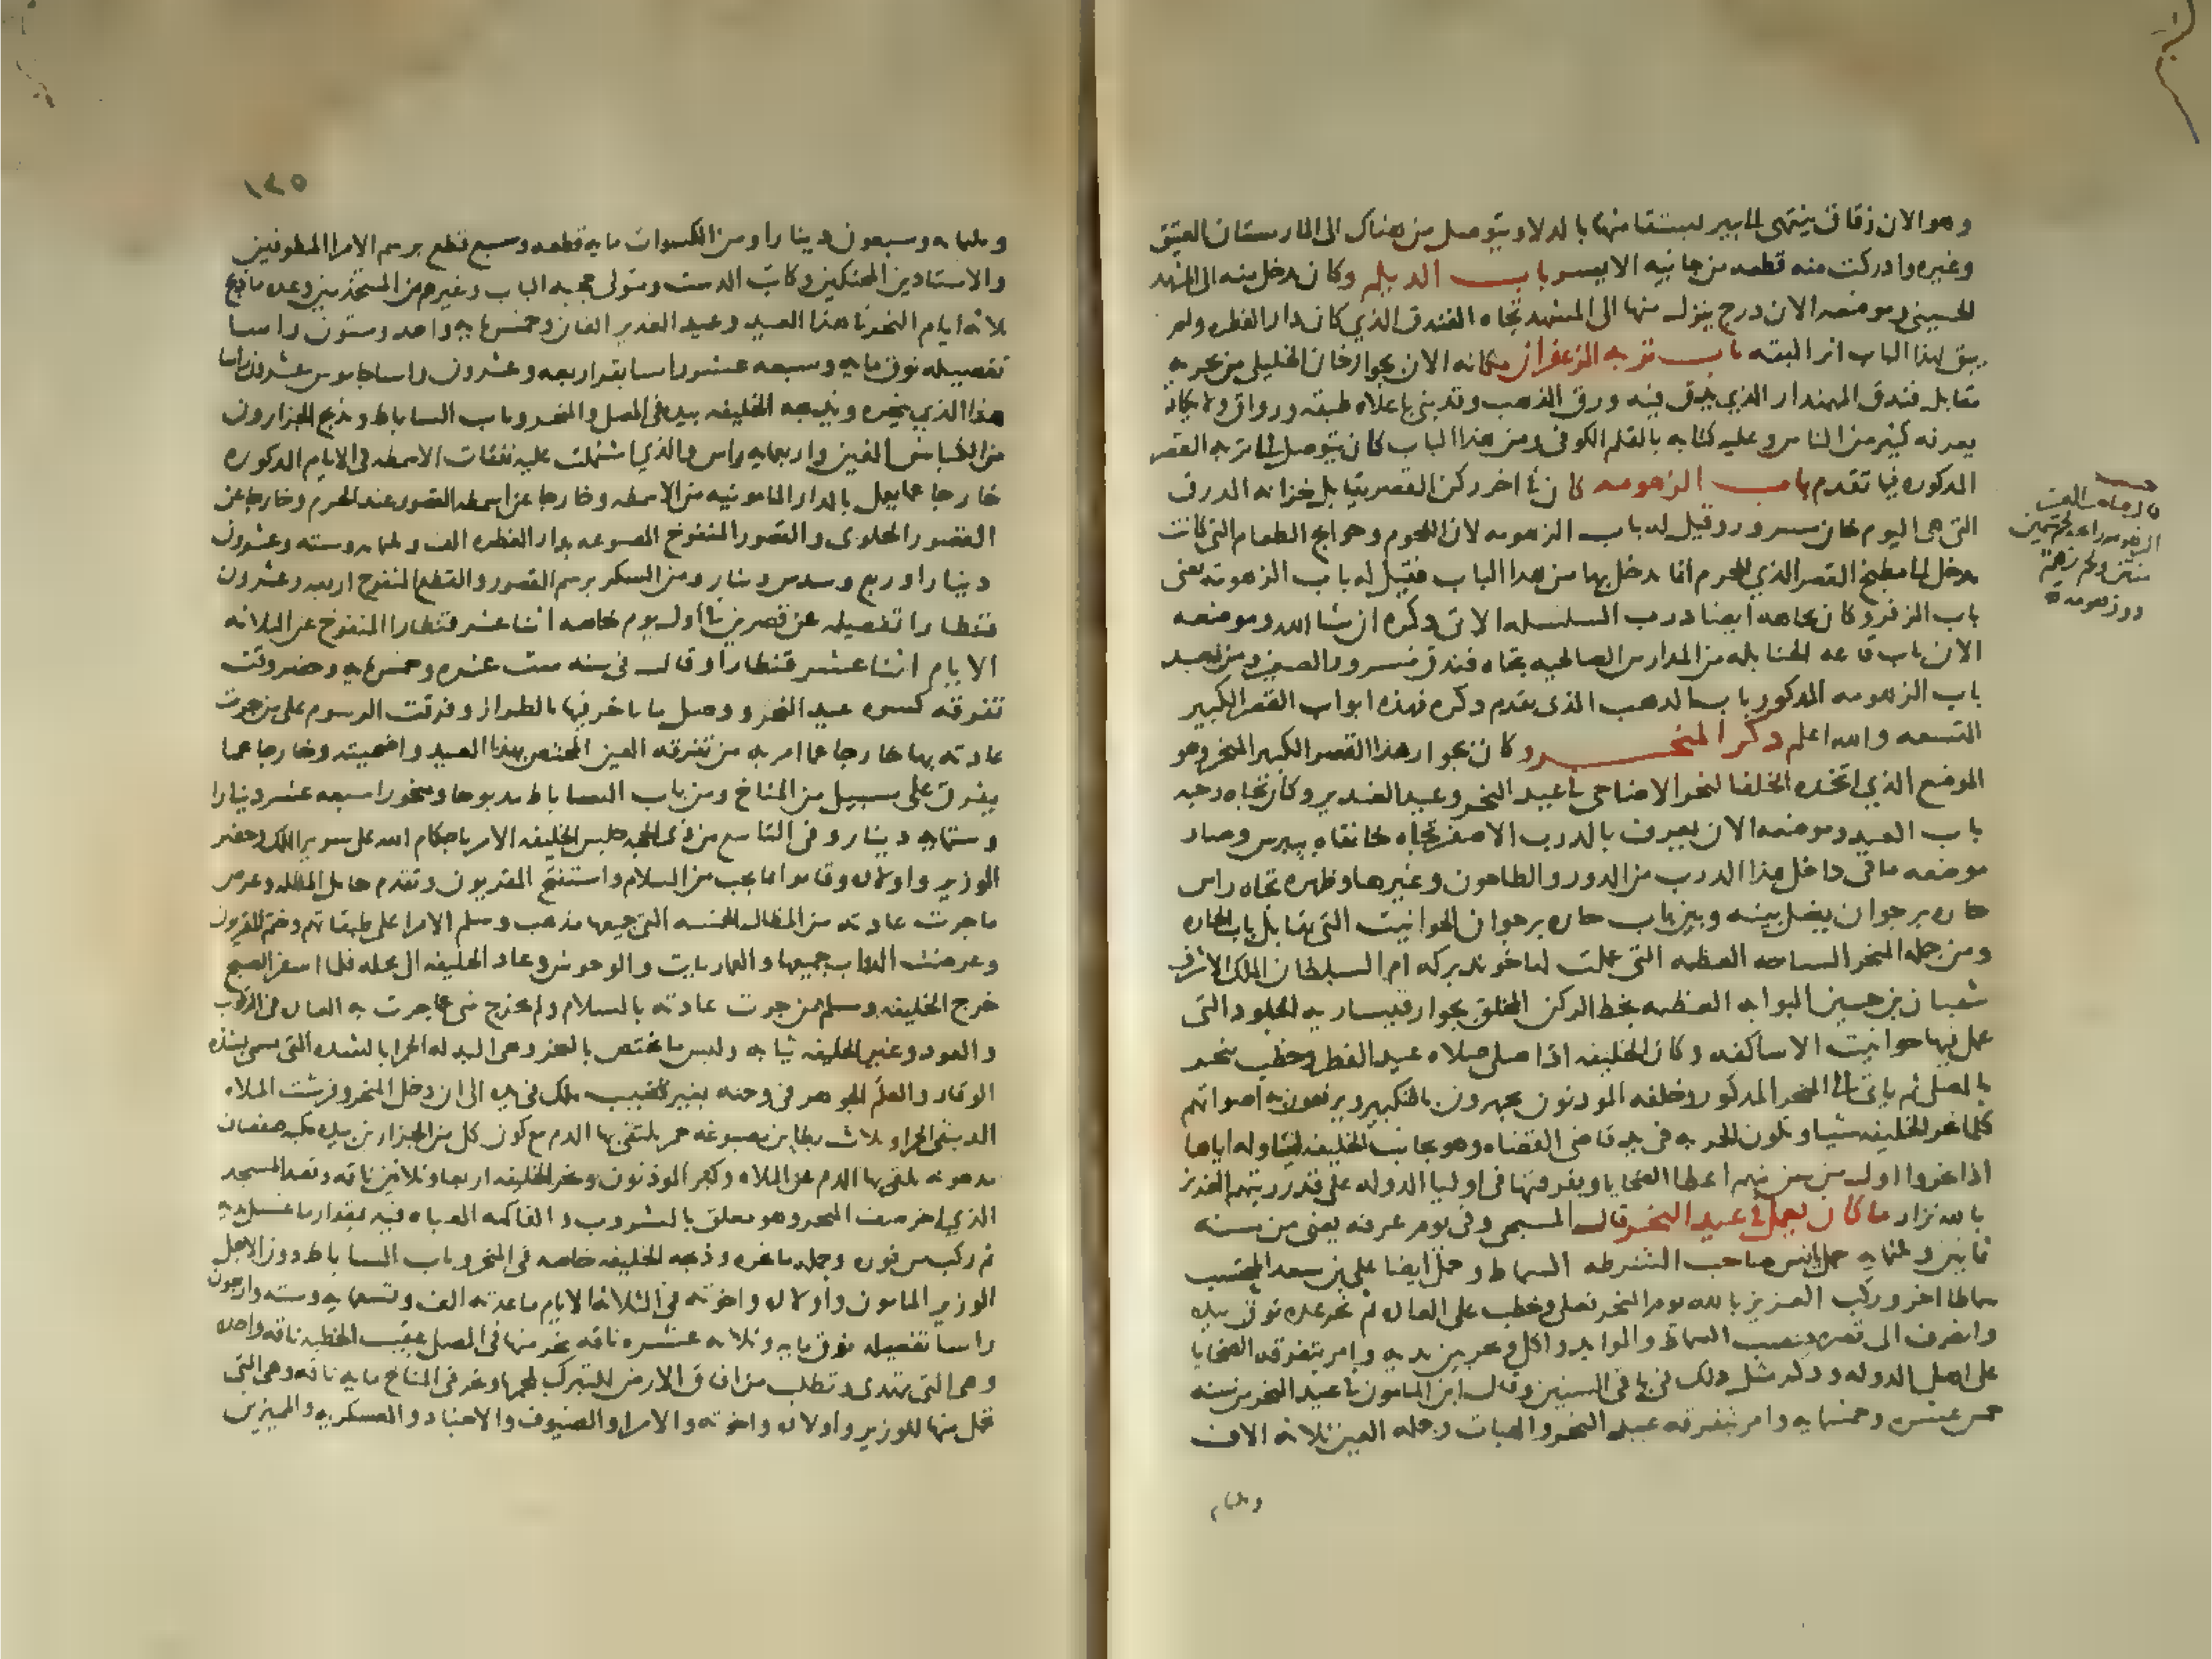 وهو الان زقاق ينتهى الى بير يستقا منها بالدلاء ويتوصل من هناك الى المارستان العتيق
وغيره وادركت منه قطعه من جانبه الايسر باب الديلم وكان يدخل منه الى المشهد
الحسينى وموضعه الان درج ينزل منها الى المشهد تجاه الفندق الذي كان دار الفطره ولم
يبق لهذا الباب اثر البته باب تربه الزعفران مكانه الان بجوار خان الخليلى من بحريه
مقابل فندق المهندار الذي يدق فيه ورق الذهب وقد بنى باعلاه طبقه ورواق ولا يكاد
يعرفه كثير من الناس وعليه كتابه بالقلم الكوفى ومن هذا الباب كان يتوصل الى تربه القصر
المدكوره فيما تقدم باب الزهومه كان فى اخر ركن القصر مقابل خزانه الدرق
التى هى اليوم خان مسرور وقيل له باب الزهومه لان اللحوم وحوايج الطعام التى كانت
تدخل الى مطبخ القصر الذي للحرم انما يدخل بها من هدا الباب فقيل له باب الزهومه يعنى
باب الزفر وكان تجاهه ايضا درب السلسله الاتى دكره ان شا الله وموضعه
الان باب قاعه الحنابله من المدارس الصالحيه تجاه فندق مسرور الصغير ومن بعد
باب الزهومه المدكور باب الدهب الذى تقدم دكره فهذه ابواب القصر الكبير
التسعه والله اعلم دكر المنحر وكان بجوار هذا القصر الكبير المنحر وهو
الموضع الذي اتخذه الخلفا لنحر الاضاحى فى عيد النحر وعيد الغدير وكان تجاه رحبه
باب العيد وموضعه الان يعرف بالدرب الاصفر تجاه خانقاه بيبرس وصار
موضعه ما فى داخل هذا الدرب من الدور والطاحون وغيرها وظهره تجاه راس
حاره برجوان يفصل بينه وبين باب حاره برجوان الحوانيت التى تقابل باب الحاره
ومن جمله المنحر الساحه العظيمه التى عملت لها خوند بركه ام السلطان الملك الاشرف
شعبان بن حسين البوابه العظيمه بخط الركن المخلق بجوار قيساريه الجلود التى
عمل فيها حوانيت الاساكفه وكان الخليفه اذا صلى صلاه عيد الفطر وخطب نحر
بالمصلى ثم ياتى الى المنحر المدكور وخلفه المودنون يجهرون بالتكبير ويرفعون به اصواتهم
كلما نحر الخليفه شيا وتكون الحربه فى يد قاضى القضاه وهو بجانب الخليفه ليناوله اياها
اذا نحر واول من سن منهم اعطا الضحايا وتفرقتها فى اوليا الدوله على قدر رتبهم العزيز
بالله نزار ما كان يعمل فى عيد النحر قال المسبحى وفى يوم عرفه يعنى من سنه
ثمانين وثلثمايه حمل يانس صاحب الشرطه السماط وحمل ايضا على بن سعد المحتسب
سماطا اخر وركب العزيز بالله يوم النحر فصلى وخطب على العاده ثم نحر عده نوق بيده
وانصرف الى قصره فنصب السماط والموايد واكل ونحر بين يديه وامر بتفرقه الضحايا
على اهل الدوله وذكر مثل ذلك فى باقى السنين وقال ابن المامون فى عيد النحر من سنه
خمس عشره وخمسمايه وامر بتفرقه عيد النحر والهبات وجمله العين ثلاثه الاف
١٢٥
وثلثمايه وسبعون دينارا ومن الكسوات مايه قطعه وسبع قطع برسم الامرا المطوقين
والاستادين المحنكين وكاتب الدست ومتولى حجبه الباب وغيرهم من المستخدمين وعده ما ذبح
ثلاثه ايام النحر فى هذا العيد وعيد الغدير الفان وخمسمايه واحد وستون راسا
تفصيله نوق مايه وسبعه عشر راسا بقر اربعه وعشرون راسا جاموس عشرون راسا
هذا الذي ينحره ويذبحه الخليفه بيده فى المصلى والمنحر وباب الساباط ويذبح الجزارون
من الكباش الفين واربعمايه راس والذي اشتملت عليه نفقات الاسمطه فى الايام المدكوره
خارجا عما يعمل بالدار المامونيه من الاسمطه وخارجا عن اسمطه القصور عند الحرم وخارجا عن
القصور الحلوى والقصور المنفوخ المصنوعه بدار الفطره الف وثلثمايه وسته وعشرون
دينارا وربع وسدس دينار ومن السكر برسم القصور والقطع المنفوخ اربعه وعشرون
قنطارا تفصيله عن قصرين فى اول يوم خاصه اثنا عشر قنطارا المنفوخ عن الثلاثه
الايام اثنا عشر قنطارا وقال فى سنه ست عشره وخمسمايه وحضر وقت
تفرقه كسوه عيد النحر ووصل ما تاخر فيها بالطراز وفرقت الرسوم على من جرت
عادته بها خارجا عما امر به من تفرقه العين المختص بهذا العيد واضحيته وخارجا عما
يفرق على سبيل من المناخ ومن باب الساباط مدبوحا ومنحورا سبعه عشر دينارا
وستمايه دينار وفى التاسع من ذى الحجه جلس الخليفه الامر باحكام الله على سرير الملك وحضر
الوزير واولاده وقاموا بما يجب من السلام واستفتح المقريون وتقدم حامل المظله وعرض
ما جرت عادته من المظال الخمسه التى جميعها مذهب وسلم الامرا على طبقاتهم وختم المقريون
وعرضت الدواب جميعها والعماريات والوحوش وعاد الخليفه الى محله فلما اسفر الصبح
خرج الخليفه وسلم من جرت عادته بالسلام ولم يخرج شى عما جرت به العاده فى الركوب
والعود وغير الخليفه ثيابه ولبس ما يختص بالنحر وهى البدله الحمرا بالشده التى تسمى بشده
الوقار والعلم الجوهر فى وجهه بغير قضيب ملك فى يده الى ان دخل المنحر وفرشت الملاه
الدبيقى الحمرا وثلاث بطاين مصبوغه حمر يتقى بها الدم مع كون كل من الجزارين بيده مكبه صفصاف
مدهونه يلقى بها الدم عن الملاه وكبر المودنون ونحر الخليفه اربعا وثلاثين ناقه وقصد المسجد
الذي اخر صف المنحر وهو معلق بالشروب والفاكهه المعباه فيه بمقدار ما غسل يديه
ثم ركب من فوره وجمله ما نحره وذبحه الخليفه خاصه فى المنحر وباب الساباط دون الاجل
الوزير المامون واولاده واخوته فى الثلاثه الايام ما عدته الف وتسعمايه وسته واربعون
راسا تفصيله نوق مايه وثلاثه عشره ناقه نحر منها فى المصلى عقيب الخطبه ناقه واحده
وهى التى تهدى وتطلب من افاق الارض للتبرك بلحمها ونحر فى المناخ مايه ناقه وهى التى
تحمل منها للوزير واولاده واخوته والامرا والضيوف والاجناد والعسكريه والمميزين